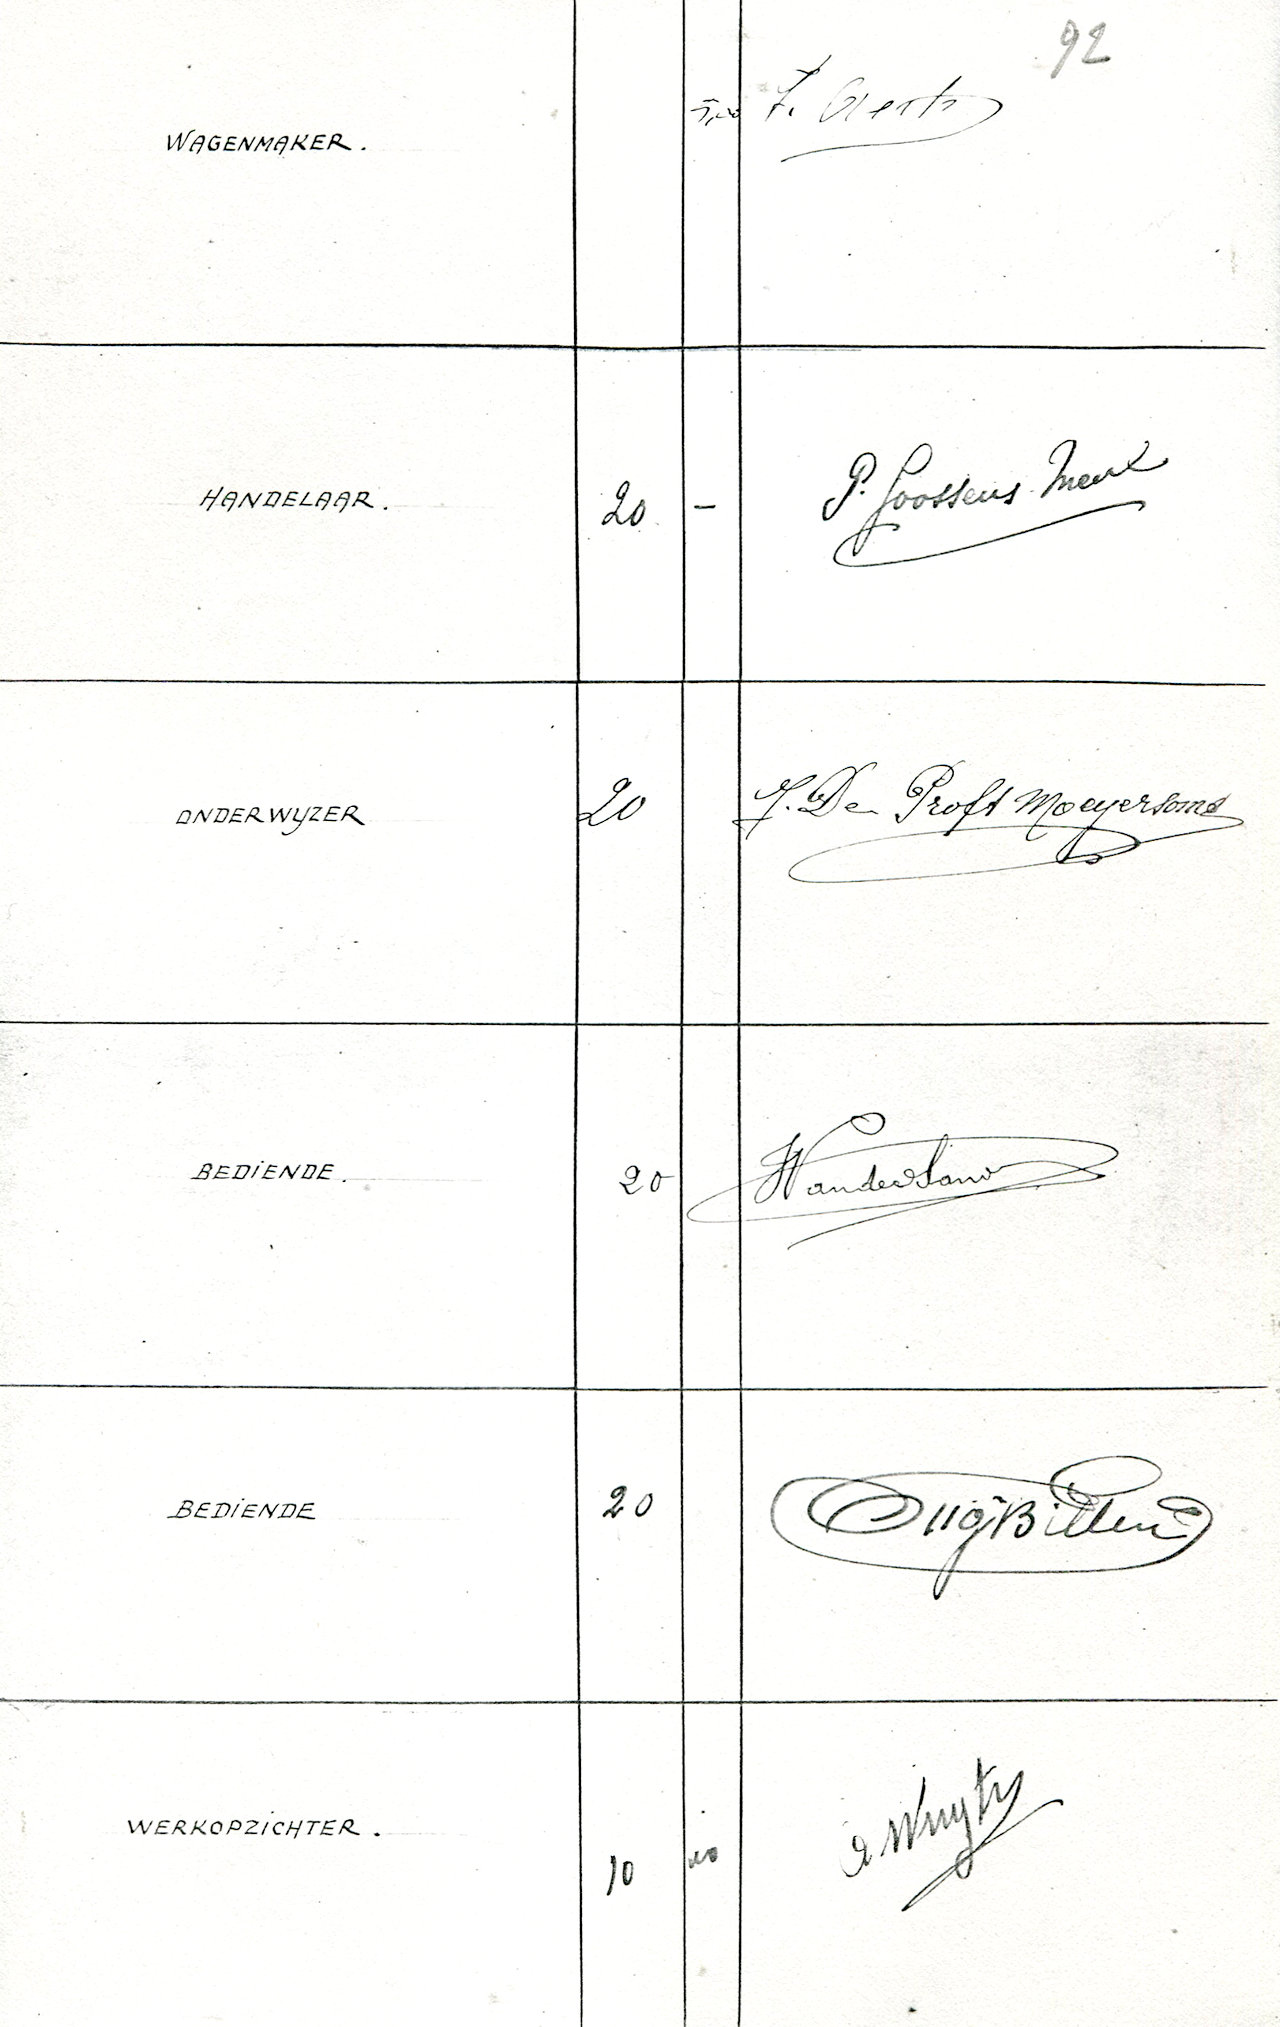 92
WAGENMAKER. F. Aerts
HANDELAAR. 20 – P. Goossens Meux
ONDERWYZER 20 De Proft Moeyersoms
BEDIENDE. 20
BEDIENDE 20 Aug Billen
WERKOPZICHTER. 10 A Wuyts